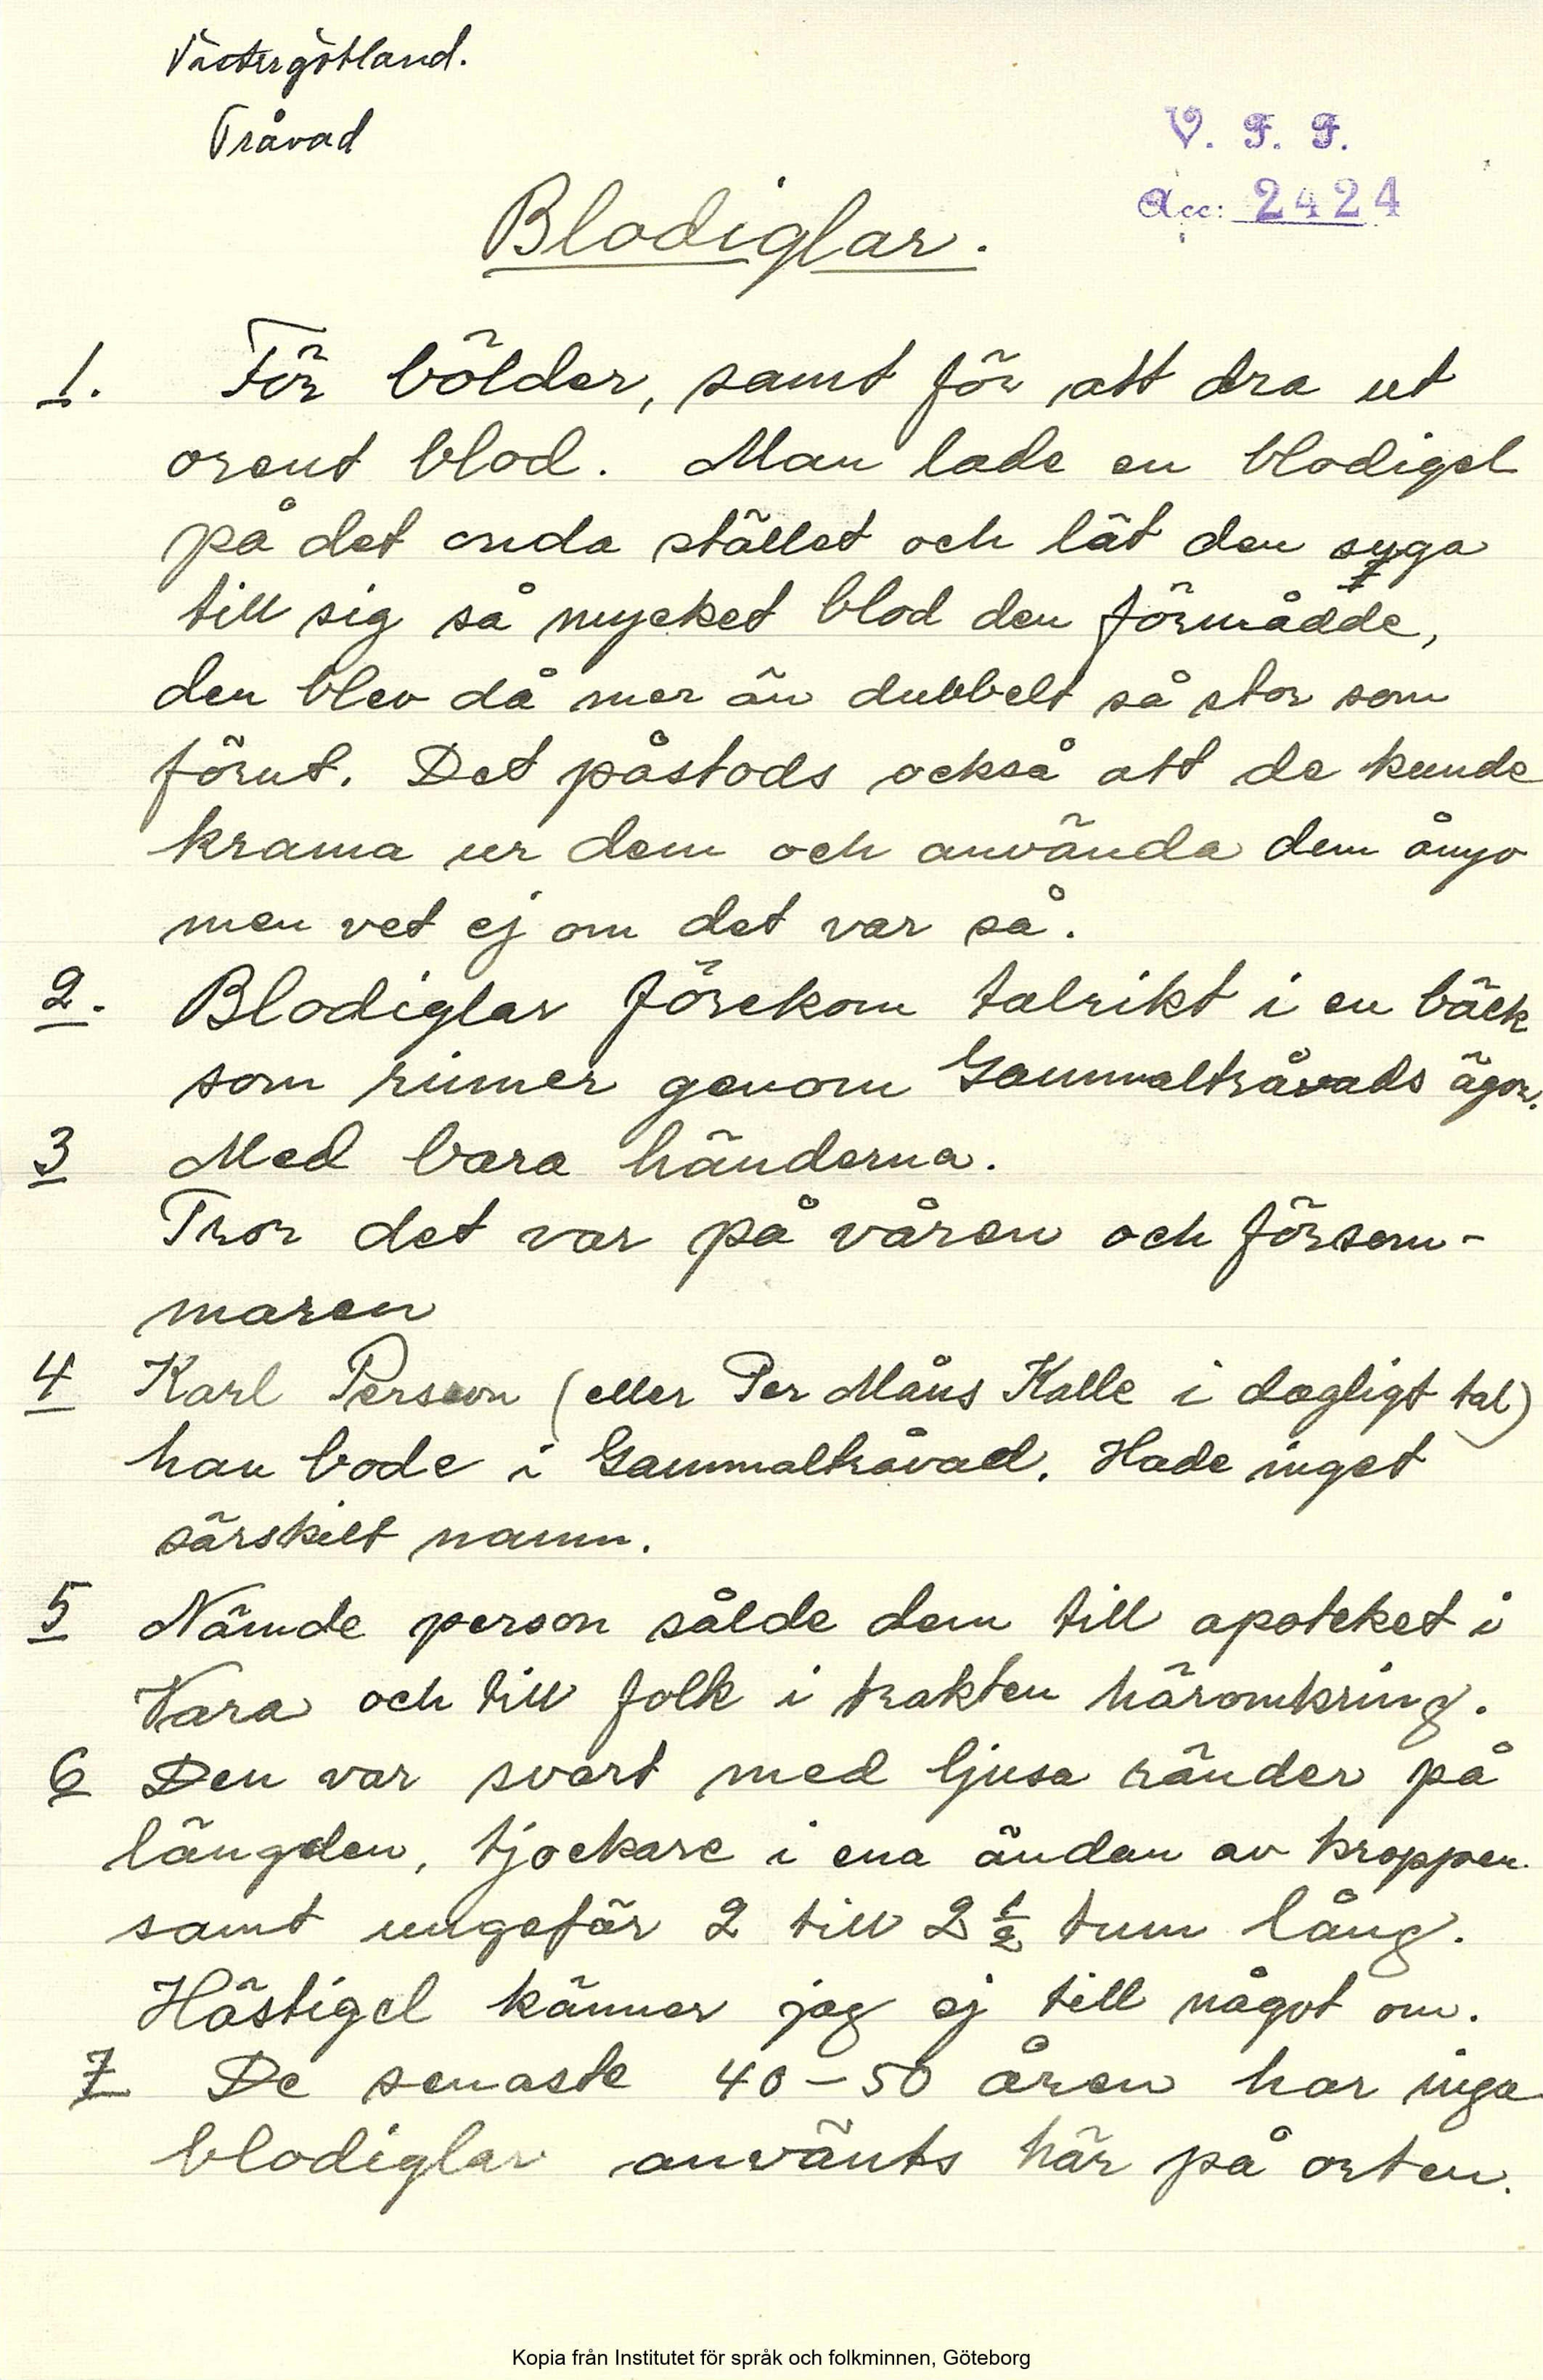 Västergötland.
Tråvad
V. F. F.
Acc: 2424
Blodiglar.
1. För bölder, samt för att dra ut
orent blod. Man lade en blodigel
på det onda stället och lät den syga
till sig så mycket blod den förmådde,
den blev då mer än dubbelt så stor som
förut. Det påstods också att de kunde
krama ur dem och använda dem ånyo
men vet ej om det var så.
2. Blodiglar förekom talrikt i en bäck
som rinner genom Gammaltråvads ägor.
3 Med bara händerna.
Tror det var på våren och försom-
maren
4 Karl Persson (eller Per Måns Kalle i dagligt tal)
han bode i Gammaltråvad. Hade inget
särskilt namn.
5 Nämde person sålde dem till apoteket i
Vara och till folk i trakten häromkring.
6 Den var svart med ljusa ränder på
längden, tjockare i ena ändan av kroppen
samt ungefär 2 till 2 1/2 tum lång.
Hästigel känner jag ej till något om.
7 De senaste 40-50 åren har inga
blodiglar använts här på orten.
Kopia från Institutet för språk och folkminnen, Göteborg